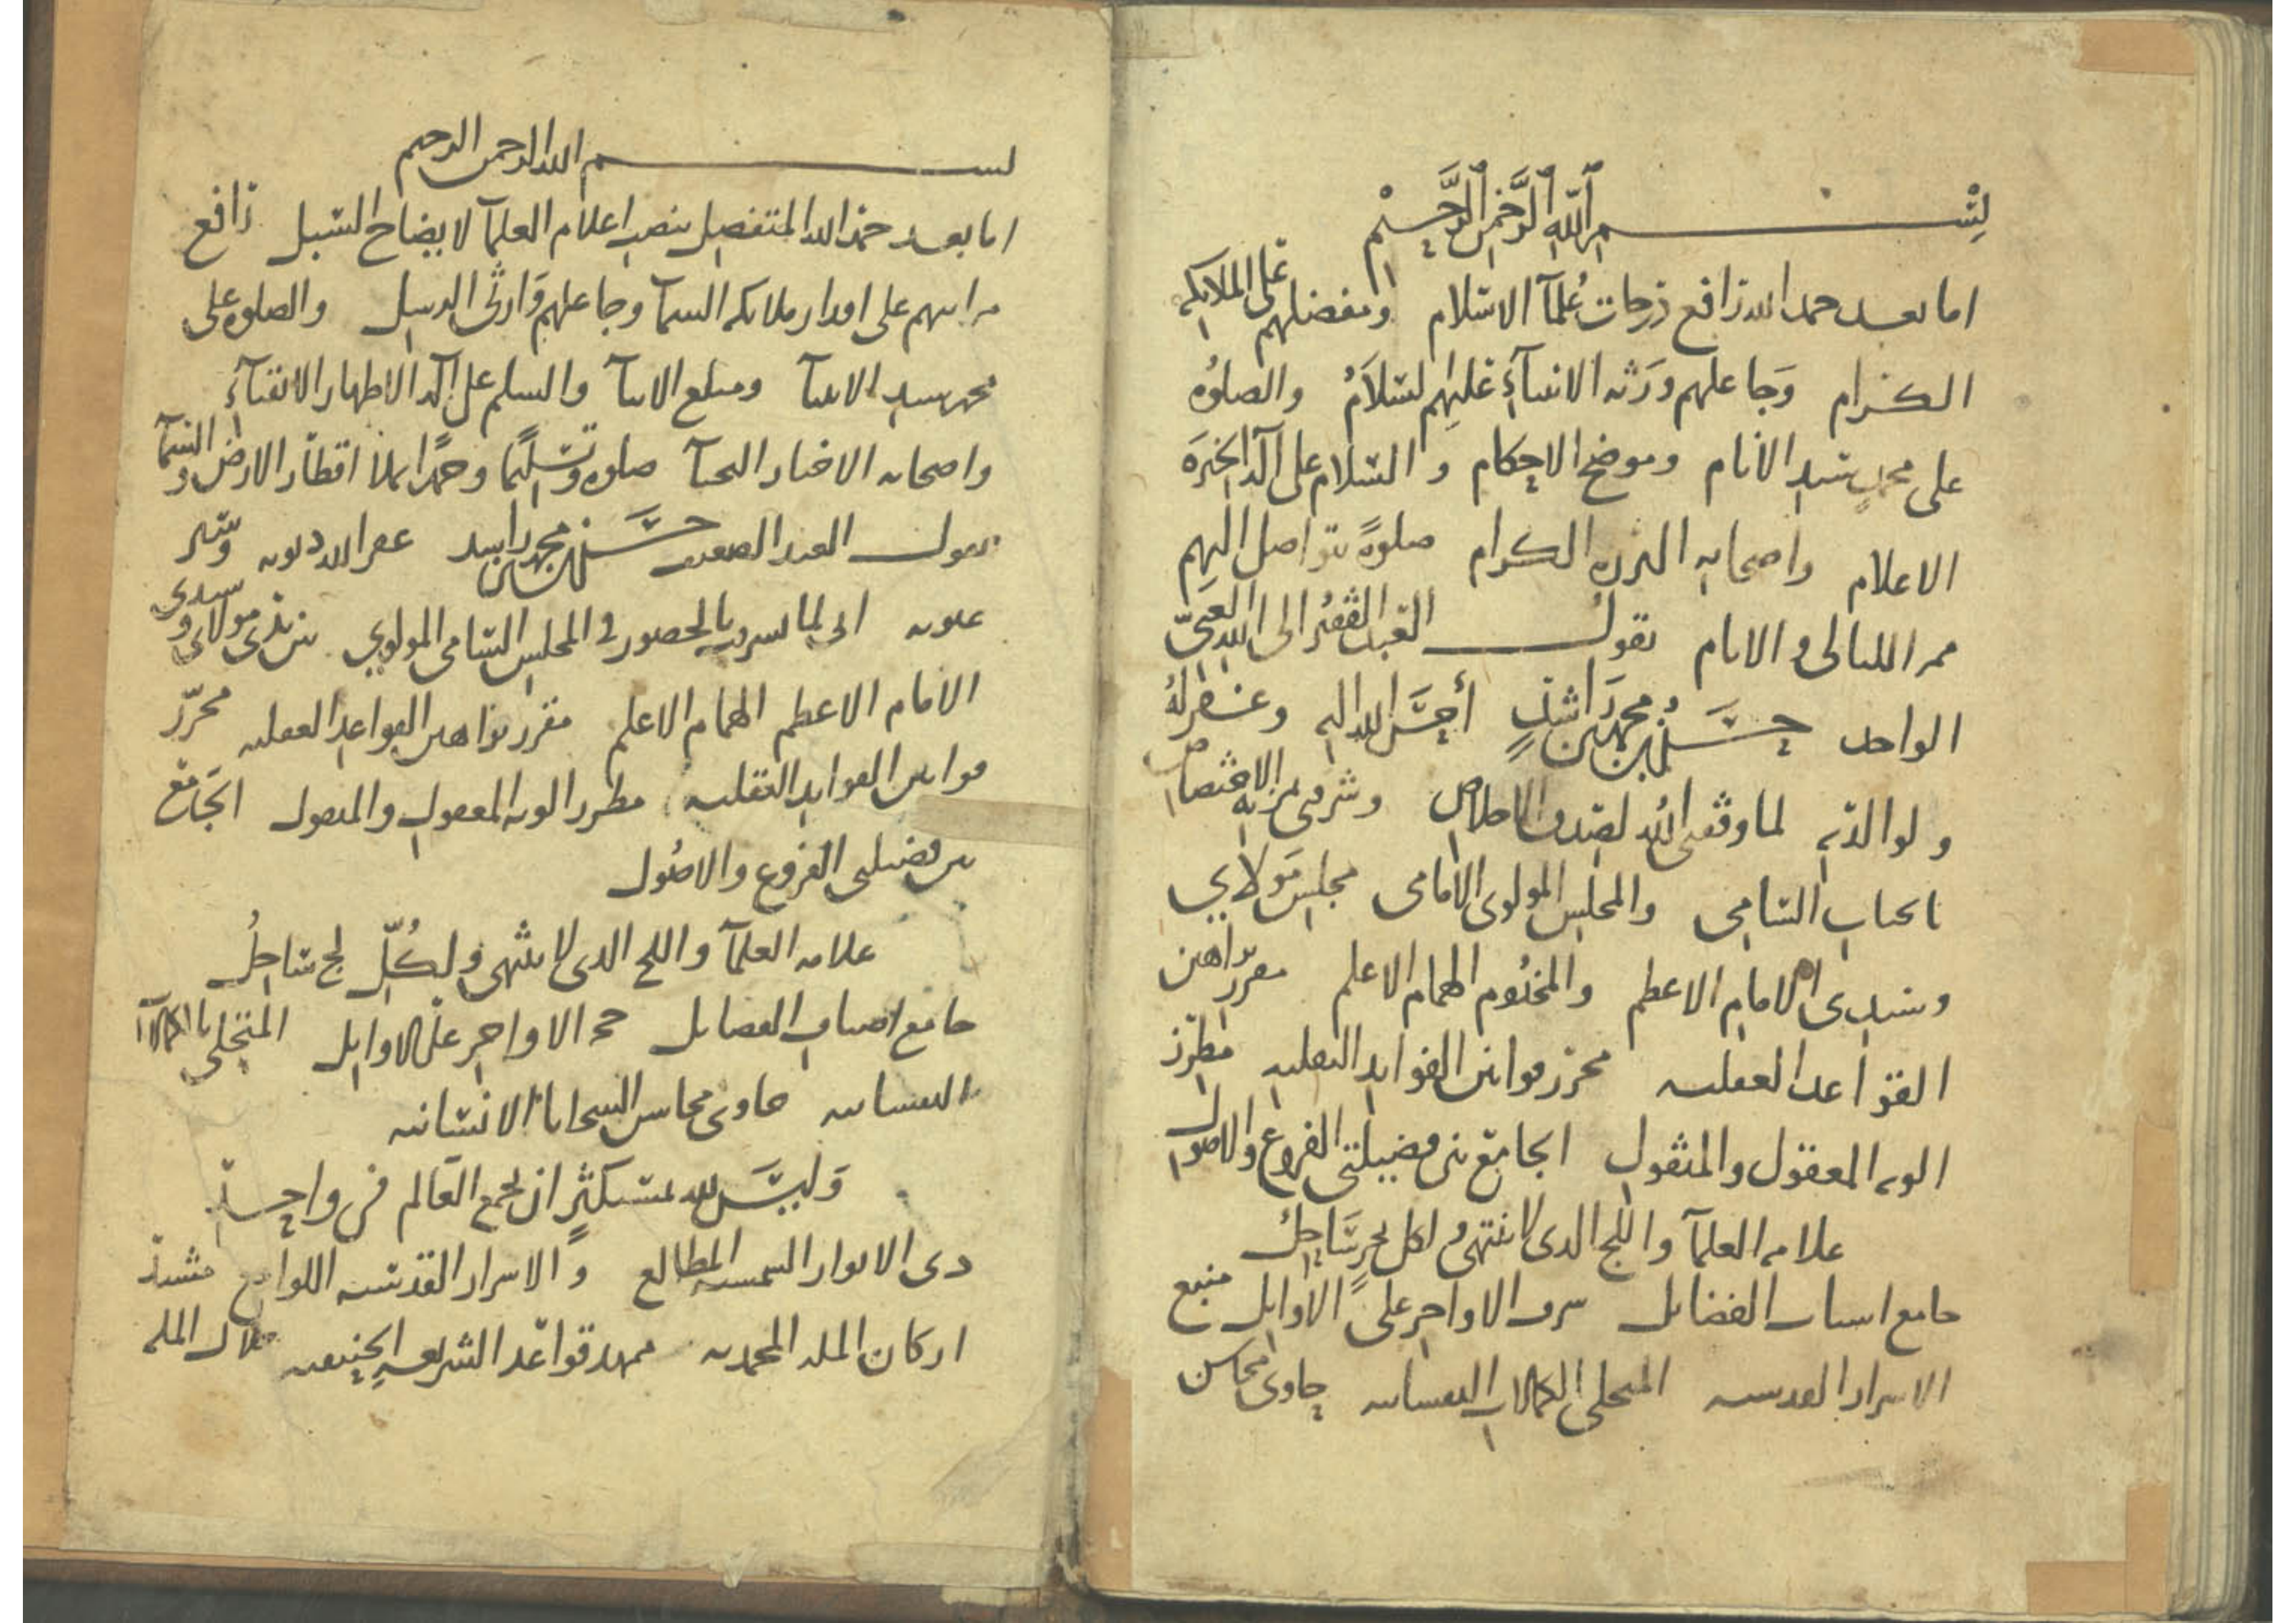 بسم الله الرحمن الرحيم
اما بعد حمد الله رافع درجات علمآ الاسلام ومفضلهم على الملايكه
الكرام وجاعلهم ورثه الانبيآء عليهم السلام والصلوة
على محمد سيد الأنام وموضح الاحكام والسلام على آله الخيرة
الاعلام واصحابه البررة الكرام صلوةً تتواصل اليهم
ممر الليالى والايام يقول العبد الفقير الى الله الغنى
الواحد حسن بن محمد بن راشد أحسن الله اليه وغفر له
ولوالديه لما وفقنى الله لصدق الاخلاص وشرفى بمزية الاختصاص
بالجناب السامى والمجلس المولوى الامامى مجلس مولاي
وسيدى الامام الاعظم والمخدوم الهمام الاعلم مقرر براهين
القواعد العقليه محرر قوانين الفوايد النقليه مطرز
الويه المعقول والمنقول الجامع بين فضيلتى الفروع والاصول
علامه العلمآ واللج الذى لا ينتهى ولكل بحرٍ ساحل
جامع اسباب الفضايل شرف الاواخر على الاوايل منبع
الاسرار القدسيه المتحلى بالكمالات النفسانيه حاوى محاسن
بسم الله الرحمن الرحيم
اما بعد حمد الله المتفضل بنصب اعلام العلمآ لايضاح السبل رافع
مراتبهم على اقدار ملايكه السمآ وجاعلهم وارثى الرسل والصلوه على
محمد سيد الانبيآ ومبلغ الانبآ والسلم على آله الاطهار الاتقيآء
واصحابه الاخيار النجبآ صلوه وتسليمًا وحمدًا يملا اقطار الارض والسمآ
يقول العبد الضعيف حسن بن محمد بن راشد غفر الله ذنوبه وستر
عيوبه انى لما تشرفت بالحضور فى المجلس السامى المولوي بين يدى مولاى وسيدى
الامام الاعظم الهمام الاعلم مقرر براهين القواعد العقليه محرّر
قوانين الفوايد النقليه مطرز الويه المعقول والمنقول الجامع
بين فضيلتى الفروع والاصول
علامه العلمآ واللج الذى لا ينتهى ولكُلّ لج ساحلُ
جامع اصناف الفضايل الاواخر على الاوايل المتحلى بالكمالات
النفسانيه حاوى محاسن السجايا الانسانيه
وليس لله بمستكثرٍ ان يجمع العالم فى واحد
ذى الانوار الشمسيه المطالع والاسرار القدسيه اللوامع مشيد
اركان المله المحمديه ممهد قواعد الشريعه الحنيفيه جلال المله